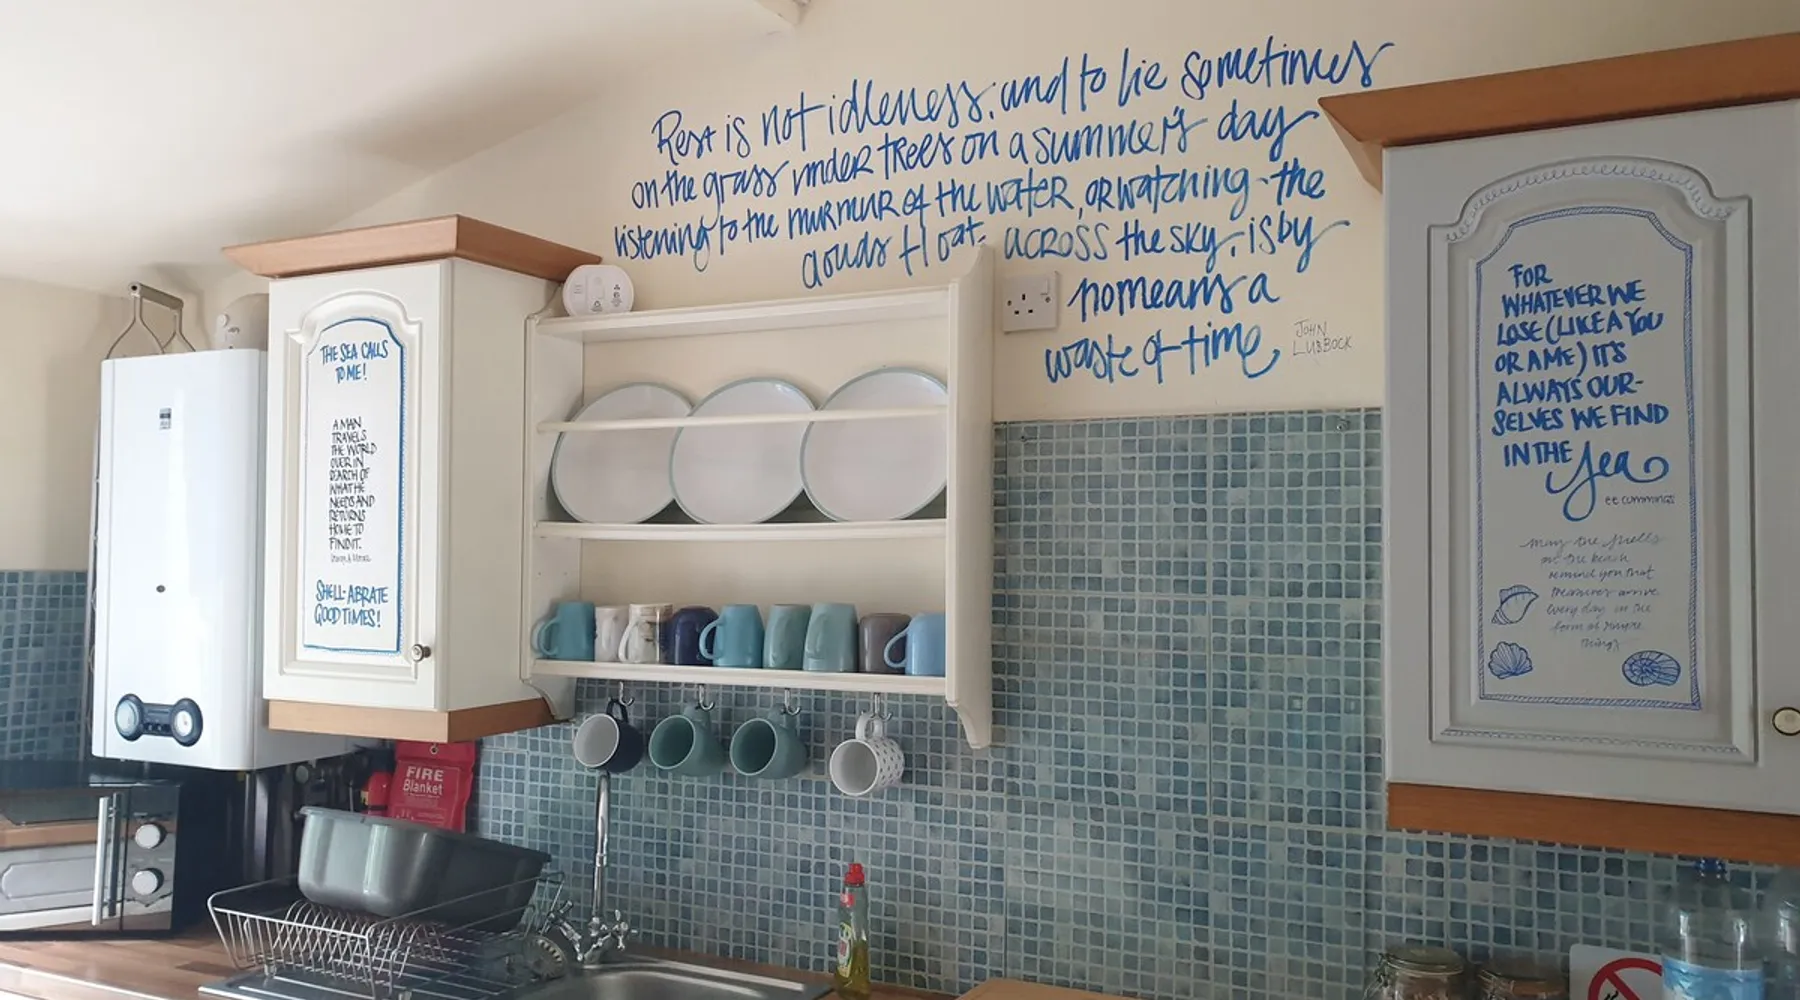 Rest is not idleness, and to lie sometimes
on the grass under trees on a summer's day
listening to the murmur of the water, or watching the
clouds float across the sky, is by
no means a
waste of time
JOHN
LUBBOCK
THE SEA CALLS
TO ME!
A MAN
TRAVELS
THE WORLD
OVER IN
SEARCH OF
WHAT HE
NEEDS AND
RETURNS
HOME TO
FIND IT.
SHELL-ABRATE
GOOD TIMES!
FOR
WHATEVER WE
LOSE (LIKE A YOU
OR A ME) IT'S
ALWAYS OUR-
SELVES WE FIND
IN THE sea
ee cummings
may the shells
on the beach
remind you that
treasures arrive
every day in the
form of simple
things
FIRE
Blanket